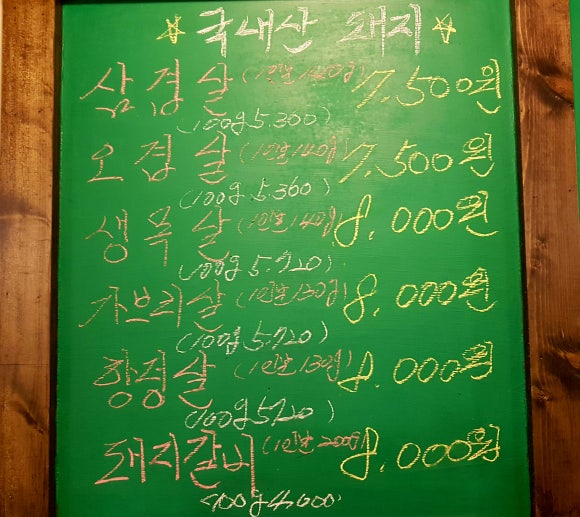 ☆ 국내산 돼지 ☆
삼겹살 (1인분 140g) 7.500원
(100g 5.300)
오겹살 (1인분 140g) 7.500원
(100g 5.360)
생목살 (1인분 140g) 8.000원
(100g 5.720)
가브리살 (1인분 130g) 8.000원
(100g 5.720)
항정살 (1인분 130g) 8.000원
(100g 5720)
돼지갈비 (1인분 200g) 8.000원
(100g 4.000)